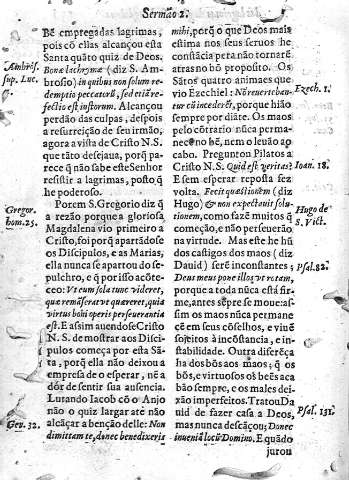 Sermão 2.
Bẽ empregadas lagrimas,
pois cõ ellas alcançou esta
Santa quãto quiz de Deos.
Bonæ lachrymæ (diz S. Am-
Ambros.
sup. Luc.
brosio) in quibus non solum re-
demptio peccatorũ, sed etiã re-
fectio est iustorum. Alcançou
perdão das culpas, depois
a resurreição de seu irmão,
agora a vista de Cristo N.S.
que tãto desejaua, porq̃ pare-
ce q̃ não sabe este Senhor
resistir a lagrimas, posto q̃
he poderoso.
Porem S. Gregorio diz q̃
Gregor.
hom. 25.
a rezão porque a gloriosa
Magdalena vio primeiro a
Cristo, foi porq̃ apartãdose
os Discipulos, e as Marias,
ella nunca se apartou do se-
pulchro, e q̃ por isso acõte-
ceo: Vt eum sola tunc videret,
quæ remãserat vt quæreret, quia
virtus boni operis perseuerantia
est. E assim auendose Cristo
N. S. de mostrar aos Disci-
pulos começa por esta Sã-
ta, porq̃ ella não deixou a
empresa de o esperar, nẽ a
dor de sentir sua ausencia.
Lutando Iacob cõ o Anjo
não o quiz largar até não
Gen. 32.
alcãçar a benção delle: Non
dimittam te, donec benedixeris
mihi, porq̃ o que Deos mais
estima nos seus seruos he
constãcia pera não tornarẽ
atras no bõ proposito. Os
Sãtos quatro animaes que
vio Ezechiel: Nõ reuerteban-
Ezech. 1.
tur cũ incederẽt, porque hião
sempre por diãte. Os maos
pelo cõtrario nũca perma-
necẽ no bẽ, nem o leuão ao
cabo. Pregunton Pilatos a
Cristo N.S. Quid est veritas?
Ioan. 18.
E sem esperar reposta fez
volta. Fecit quæstionem (diz
Hugo) & non expectauit solu-
Hugo de
S. Vict.
tionem, como fazẽ muitos q̃
começão, e não perseuerão
na virtude. Mas este he hũ
dos castigos dos maos (diz
Dauid) serẽ inconstantes:
Psal. 82.
Deus meus pone illos vt rotam,
porque a toda nũca está fir-
me, antes sẽpre se moue: as-
sim os maos nũca permane-
cẽ em seus cõselhos, e viuẽ
sojeitos à incõstãcia, e in-
stabilidade. Outra diferẽça
ha dos bõs aos maos; q̃ os
bõs, e virtuosos os bẽs acaba
bão sempre, e os males dei-
xão imperfeitos. Tratou Da
uid de fazer casa a Deos,
mas nunca descãçou; Donec
Psal. 131.
inueniã locũ Domino. E quãdo
jurou